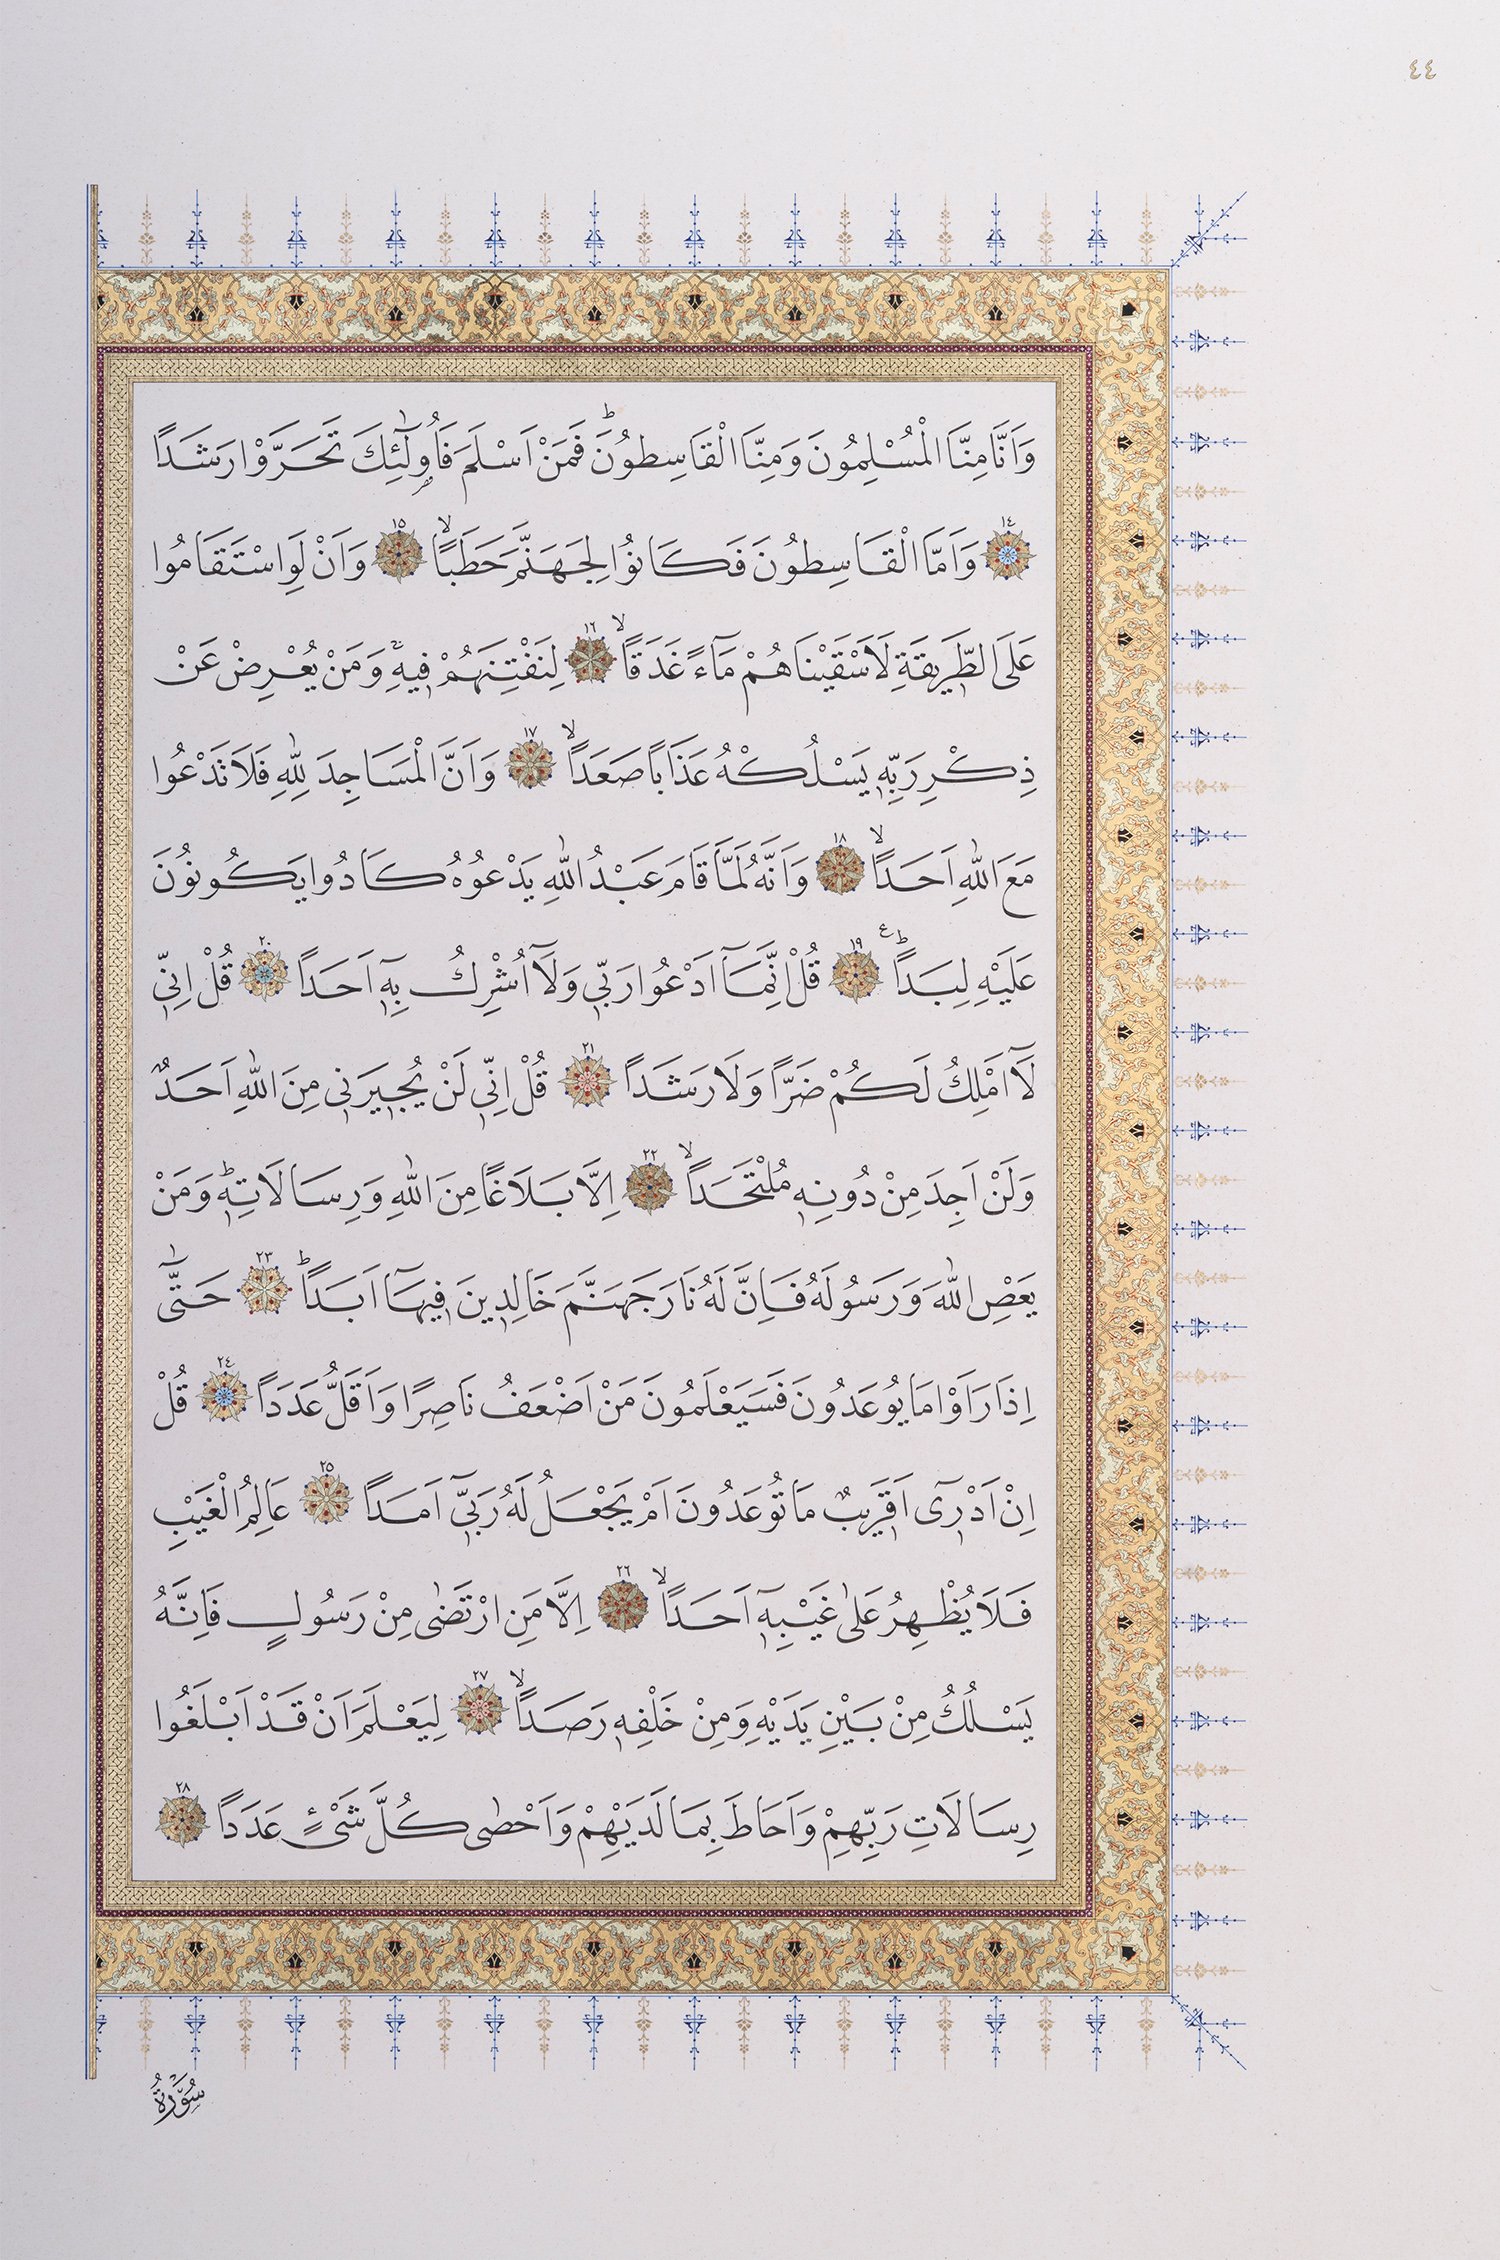 ٤٤
وَاَنَّا مِنَّا الْمُسْلِمُونَ وَمِنَّا الْقَاسِطُونَۜ فَمَنْ اَسْلَمَ فَاُو۬لٰٓئِكَ تَحَرَّوْا رَشَدًا
﴿١٤﴾ وَاَمَّا الْقَاسِطُونَ فَكَانُوا لِجَهَنَّمَ حَطَبًاۙ ﴿١٥﴾ وَاَنْ لَوِ اسْتَقَامُوا
عَلَى الطَّر۪يقَةِ لَاَسْقَيْنَاهُمْ مَٓاءً غَدَقًاۙ ﴿١٦﴾ لِنَفْتِنَهُمْ ف۪يهِۜ وَمَنْ يُعْرِضْ عَنْ
ذِكْرِ رَبِّه۪ يَسْلُكْهُ عَذَابًا صَعَدًاۙ ﴿١٧﴾ وَاَنَّ الْمَسَاجِدَ لِلّٰهِ فَلَا تَدْعُوا
مَعَ اللّٰهِ اَحَدًاۙ ﴿١٨﴾ وَاَنَّهُ لَمَّا قَامَ عَبْدُ اللّٰهِ يَدْعُوهُ كَادُوا يَكُونُونَ
عَلَيْهِ لِبَدًاۜ ع ﴿١٩﴾ قُلْ اِنَّمَٓا اَدْعُوا رَبّ۪ي وَلَٓا اُشْرِكُ بِه۪ٓ اَحَدًا ﴿٢٠﴾ قُلْ اِنّ۪ي
لَٓا اَمْلِكُ لَكُمْ ضَرًّا وَلَا رَشَدًا ﴿٢١﴾ قُلْ اِنّ۪ي لَنْ يُج۪يرَن۪ي مِنَ اللّٰهِ اَحَدٌ
وَلَنْ اَجِدَ مِنْ دُونِه۪ مُلْتَحَدًاۙ ﴿٢٢﴾ اِلَّا بَلَاغًا مِنَ اللّٰهِ وَرِسَالَاتِه۪ۜ وَمَنْ
يَعْصِ اللّٰهَ وَرَسُولَهُ فَاِنَّ لَهُ نَارَ جَهَنَّمَ خَالِد۪ينَ ف۪يهَٓا اَبَدًاۜ ﴿٢٣﴾ حَتّٰٓى
اِذَا رَاَوْا مَا يُوعَدُونَ فَسَيَعْلَمُونَ مَنْ اَضْعَفُ نَاصِرًا وَاَقَلُّ عَدَدًا ﴿٢٤﴾ قُلْ
اِنْ اَدْر۪ٓي اَقَر۪يبٌ مَا تُوعَدُونَ اَمْ يَجْعَلُ لَهُ رَبّ۪ٓي اَمَدًا ﴿٢٥﴾ عَالِمُ الْغَيْبِ
فَلَا يُظْهِرُ عَلٰى غَيْبِه۪ٓ اَحَدًاۙ ﴿٢٦﴾ اِلَّا مَنِ ارْتَضٰى مِنْ رَسُولٍ فَاِنَّهُ
يَسْلُكُ مِنْ بَيْنِ يَدَيْهِ وَمِنْ خَلْفِه۪ رَصَدًاۙ ﴿٢٧﴾ لِيَعْلَمَ اَنْ قَدْ اَبْلَغُوا
رِسَالَاتِ رَبِّهِمْ وَاَحَاطَ بِمَا لَدَيْهِمْ وَاَحْصٰى كُلَّ شَيْءٍ عَدَدًا ﴿٢٨﴾
سُورَةُ